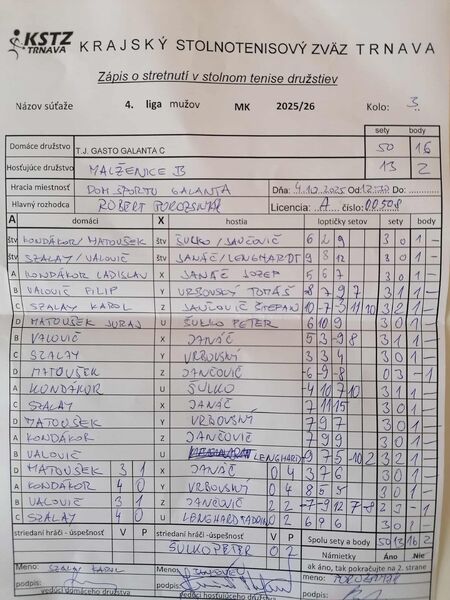 KSTZ TRNAVA KRAJSKÝ STOLNOTENISOVÝ ZVÄZ TRNAVA
Zápis o stretnutí v stolnom tenise družstiev
Názov súťaže 4. liga mužov MK 2025/26 Kolo: 3.
sety body
Domáce družstvo T.J. GASTO GALANTA C 50 16
Hosťujúce družstvo MALŽENICE B 13 2
Hracia miestnosť DOM ŠPORTU GALANTA Dňa: 4.10.2025 Od: Do:
Hlavný rozhodca ROBERT POROZSNYÁK Licencia: A číslo: 00508
A domáci X hostia loptičky setov sety body
štv KONDÁKOR/MATOUŠEK štv ŠULKO/JANČOVIČ 6 2 9 3 0 1 -
štv SZALAY/VALOVIČ štv JANÁČ/LENGHARDT 9 8 12 3 0 1 -
A KONDÁKOR LADISLAV X JANÁČ JOZEF 5 6 7 3 0 1 -
B VALOVIČ FILIP Y VRBOVSKÝ TOMÁŠ -8 7 9 7 3 1 1 -
C SZALAY KAROL Z JANČOVIČ ŠTEFAN 10 -7 -3 11 10 3 2 1 -
D MATOUŠEK JURAJ U ŠULKO PETER 6 10 9 3 0 1 -
B VALOVIČ X JANÁČ 5 3 -9 8 3 1 1 -
C SZALAY Y VRBOVSKÝ 3 3 4 3 0 1 -
D MATOUŠEK Z JANČOVIČ -6 -9 -8 0 3 - 1
A KONDÁKOR U ŠULKO -4 10 7 10 3 1 1 -
C SZALAY X JANÁČ 7 11 15 3 0 1 -
D MATOUŠEK Y VRBOVSKÝ 7 9 7 3 0 1 -
A KONDÁKOR Z JANČOVIČ 7 9 9 3 0 1 -
B VALOVIČ U LENGHARDT -9 7 5 -10 2 3 2 1 -
D MATOUŠEK 3 1 X JANÁČ 0 4 3 7 6 3 0 1 -
A KONDÁKOR 4 0 Y VRBOVSKÝ 0 4 8 5 5 3 0 1 -
B VALOVIČ 3 1 Z JANČOVIČ 2 2 -7 -9 12 7 -8 2 3 - 1
C SZALAY 4 0 U LENGHARDT 0 2 6 9 6 3 0 1 -
striedaní hráči - úspešnosť V P striedaní hráči - úspešnosť V P Spolu sety a body 50 13 16 2
ŠULKO PETER 0 2 Námietky Áno Nie
Meno: SZALAY KAROL Meno: ak áno, tak pokračujte na 2. strane
podpis: podpis: meno: POROZSNYÁK
vedúci domáceho družstva vedúci hosťujúceho družstva podpis: